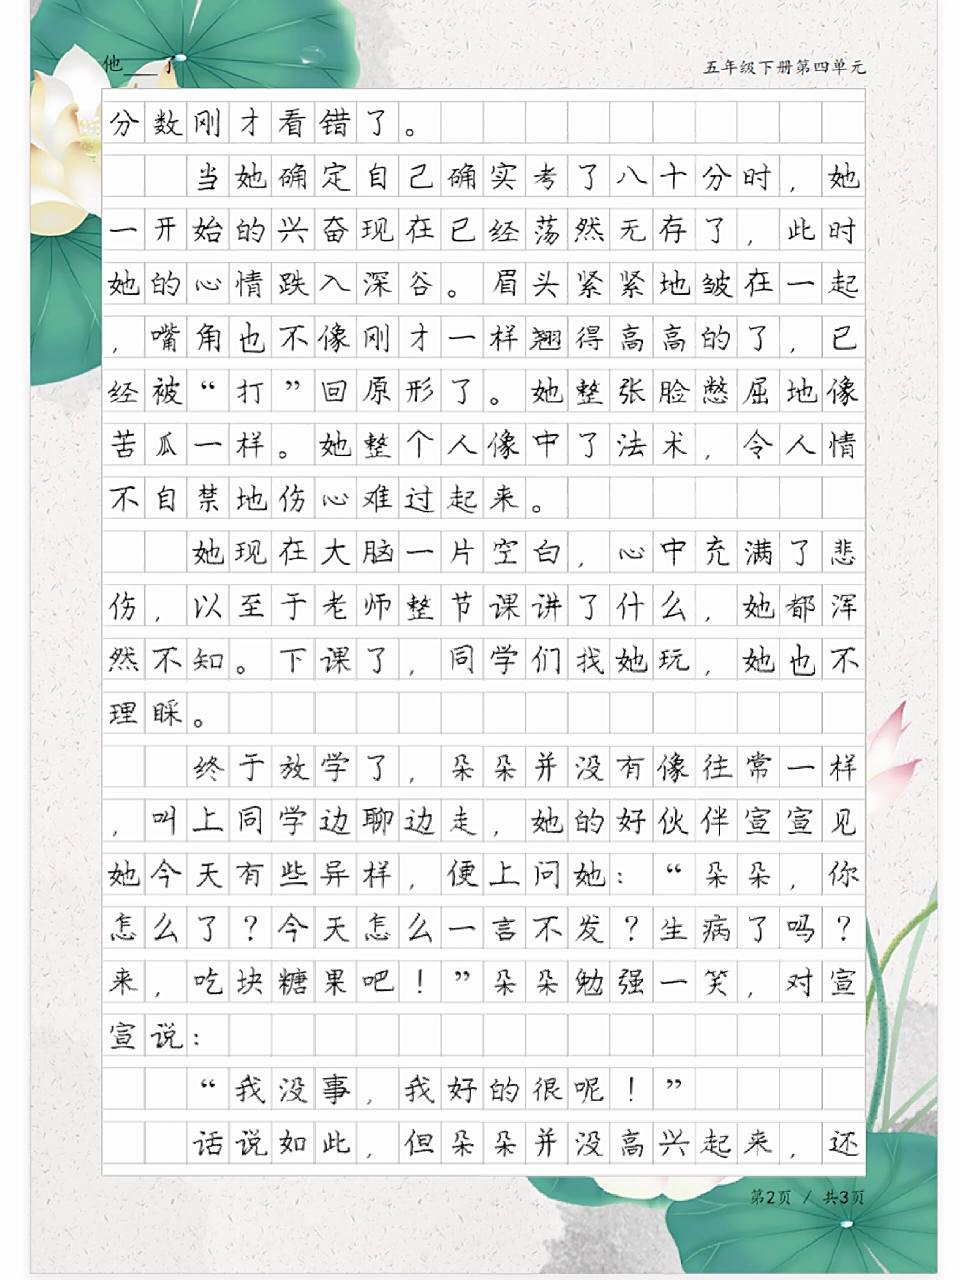 他___了
五年级下册第四单元
分数刚才看错了。
当她确定自己确实考了八十分时，她
一开始的兴奋现在已经荡然无存了，此时
她的心情跌入深谷。眉头紧紧地皱在一起
，嘴角也不像刚才一样翘得高高的了，已
经被“打”回原形了。她整张脸憋屈地像
苦瓜一样。她整个人像中了法术，令人情
不自禁地伤心难过起来。
她现在大脑一片空白，心中充满了悲
伤，以至于老师整节课讲了什么，她都浑
然不知。下课了，同学们找她玩，她也不
理睬。
终于放学了，朵朵并没有像往常一样
，叫上同学边聊边走，她的好伙伴宣宣见
她今天有些异样，便上问她：“朵朵，你
怎么了？今天怎么一言不发？生病了吗？
来，吃块糖果吧！”朵朵勉强一笑，对宣
宣说：
“我没事，我好的很呢！”
话说如此，但朵朵并没高兴起来，还
第2页 / 共3页